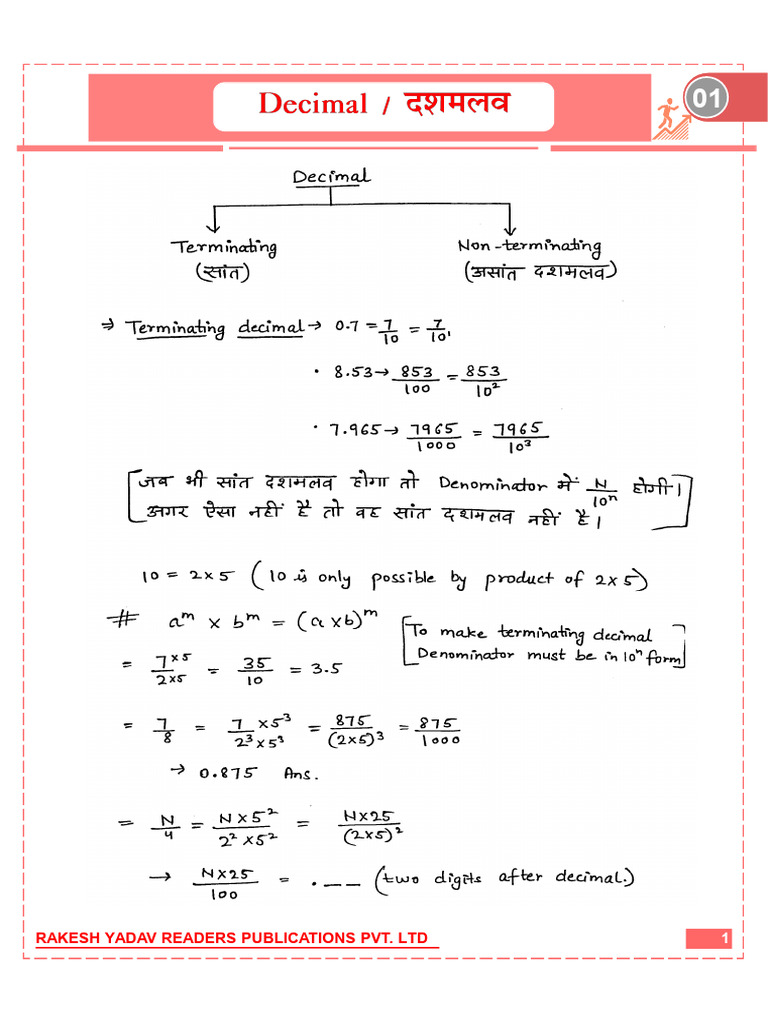 Decimal / दशमलव
01
Decimal
Terminating Non-terminating
(सांत) (असांत दशमलव)
⇒ Terminating decimal → 0.7 = 7/10 = 7/10¹
• 8.53 → 853/100 = 853/10²
• 7.965 → 7965/1000 = 7965/10³
[जब भी सांत दशमलव होगा तो Denominator में N/10ⁿ होगी।
अगर ऐसा नहीं है तो वह सांत दशमलव नहीं है।]
10 = 2×5 (10 is only possible by product of 2×5)
# aᵐ × bᵐ = (a×b)ᵐ
[To make terminating decimal
Denominator must be in 10ⁿ form]
= 7×5/2×5 = 35/10 = 3.5
= 7/8 = 7×5³/2³×5³ = 875/(2×5)³ = 875/1000
→ 0.875 Ans.
= N/4 = N×5²/2²×5² = N×25/(2×5)²
→ N×25/100 = .__ (two digits after decimal.)
RAKESH YADAV READERS PUBLICATIONS PVT. LTD
1